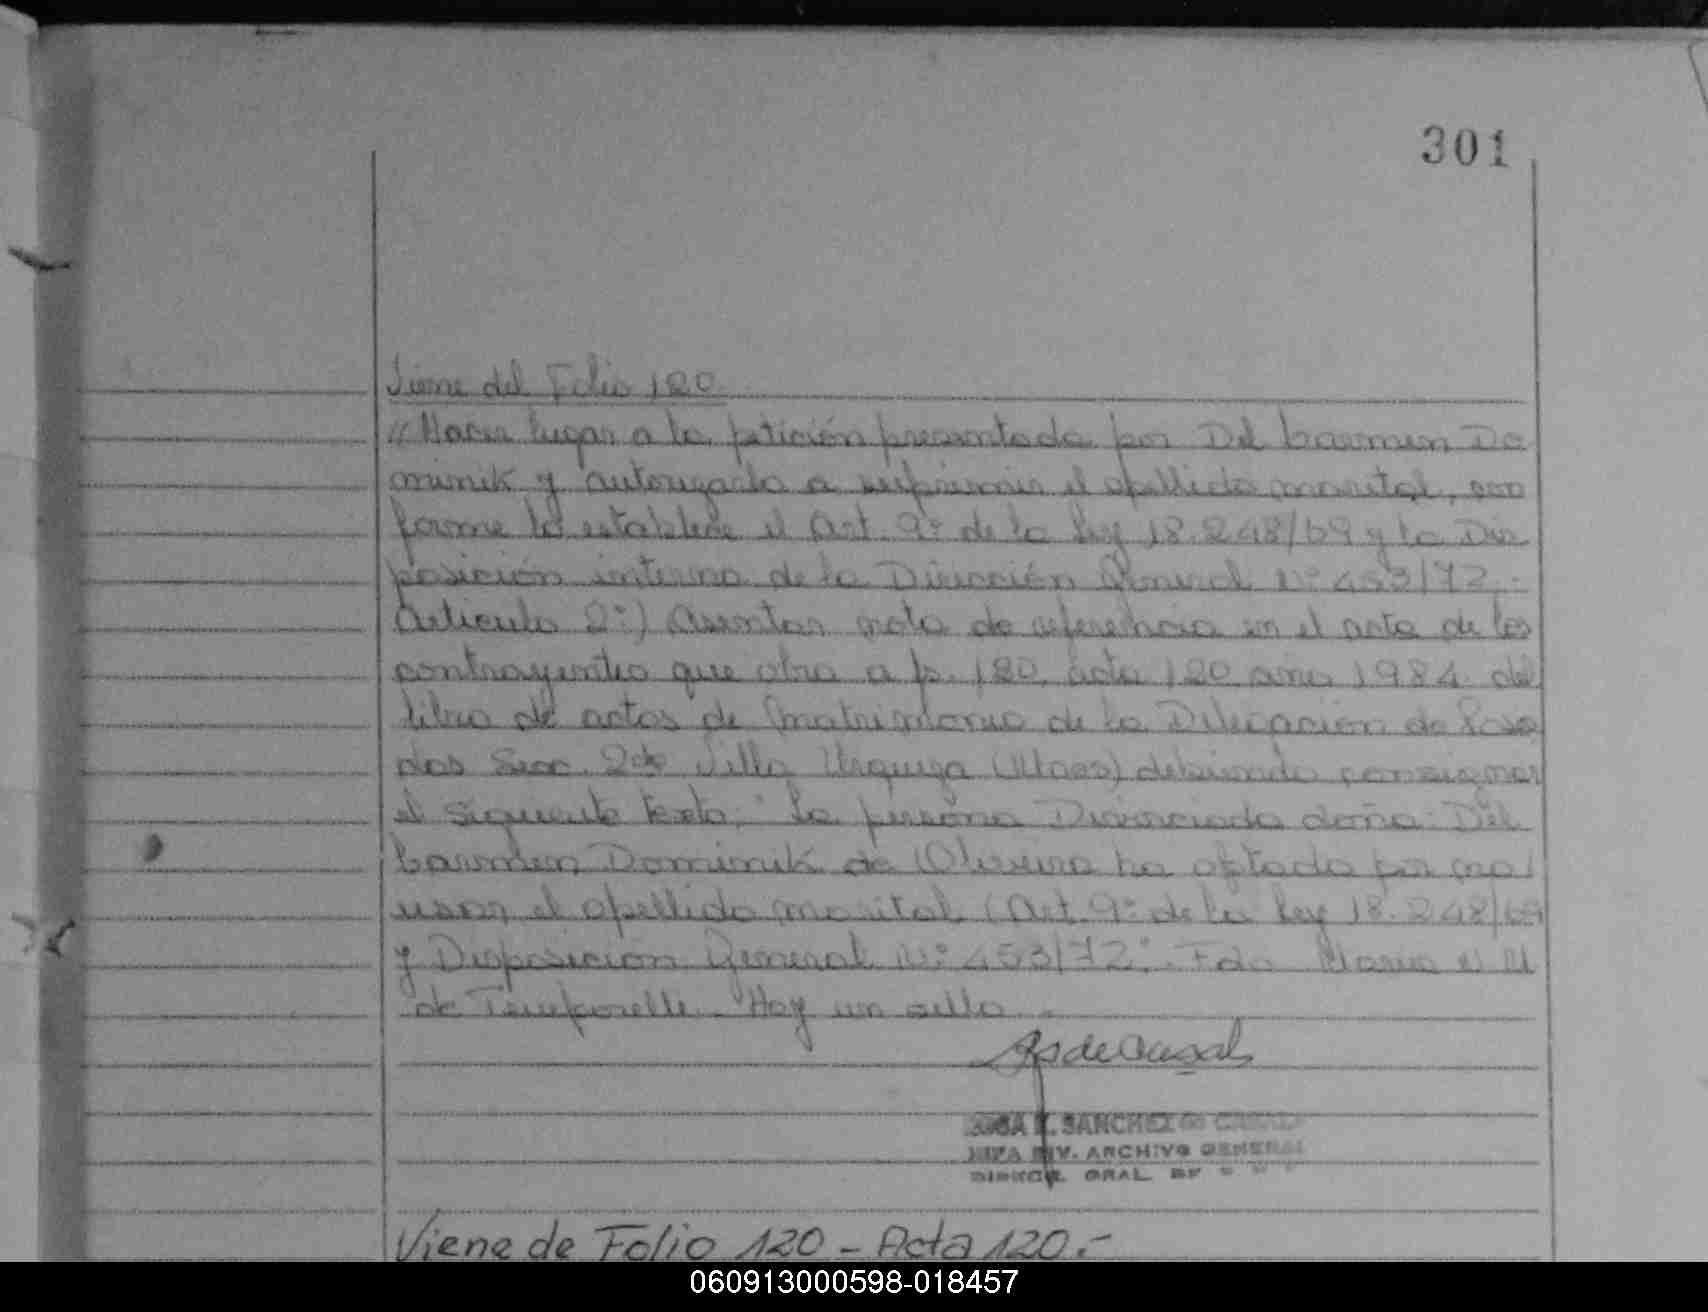 301
Viene del Folio 120.
"Hacer lugar a la petición presentada por Del Carmen Do
minik y autorizarla a suprimir el apellido marital, con
forme lo establece el Art. 9º de la Ley 18.248/69 y la Dis
posición interna de la Dirección General Nº 453/72.-
Artículo 2º) Asentar nota de referencia en el acta de los
contrayentes que obra a fs. 120, acta 120 año 1984 del
libro de actas de Matrimonio de la Delegación de Posa
das Secc. 2da Villa Urquiza (Mnes) debiendo consignar
el siguiente texto: "La persona Divorciada doña: Del
Carmen Dominik de Oliveira ha optado por no/
usar el apellido marital (Art. 9º de la Ley 18.248/69
y Disposición General Nº 453/72". Fdo Maria
de Temporelli. Hay un sello.-
SANCHEZ de CASALS
JEFA DIV. ARCHIVO GENERAL
GRAL
Viene de Folio 120 - Acta 120.-
060913000598-018457